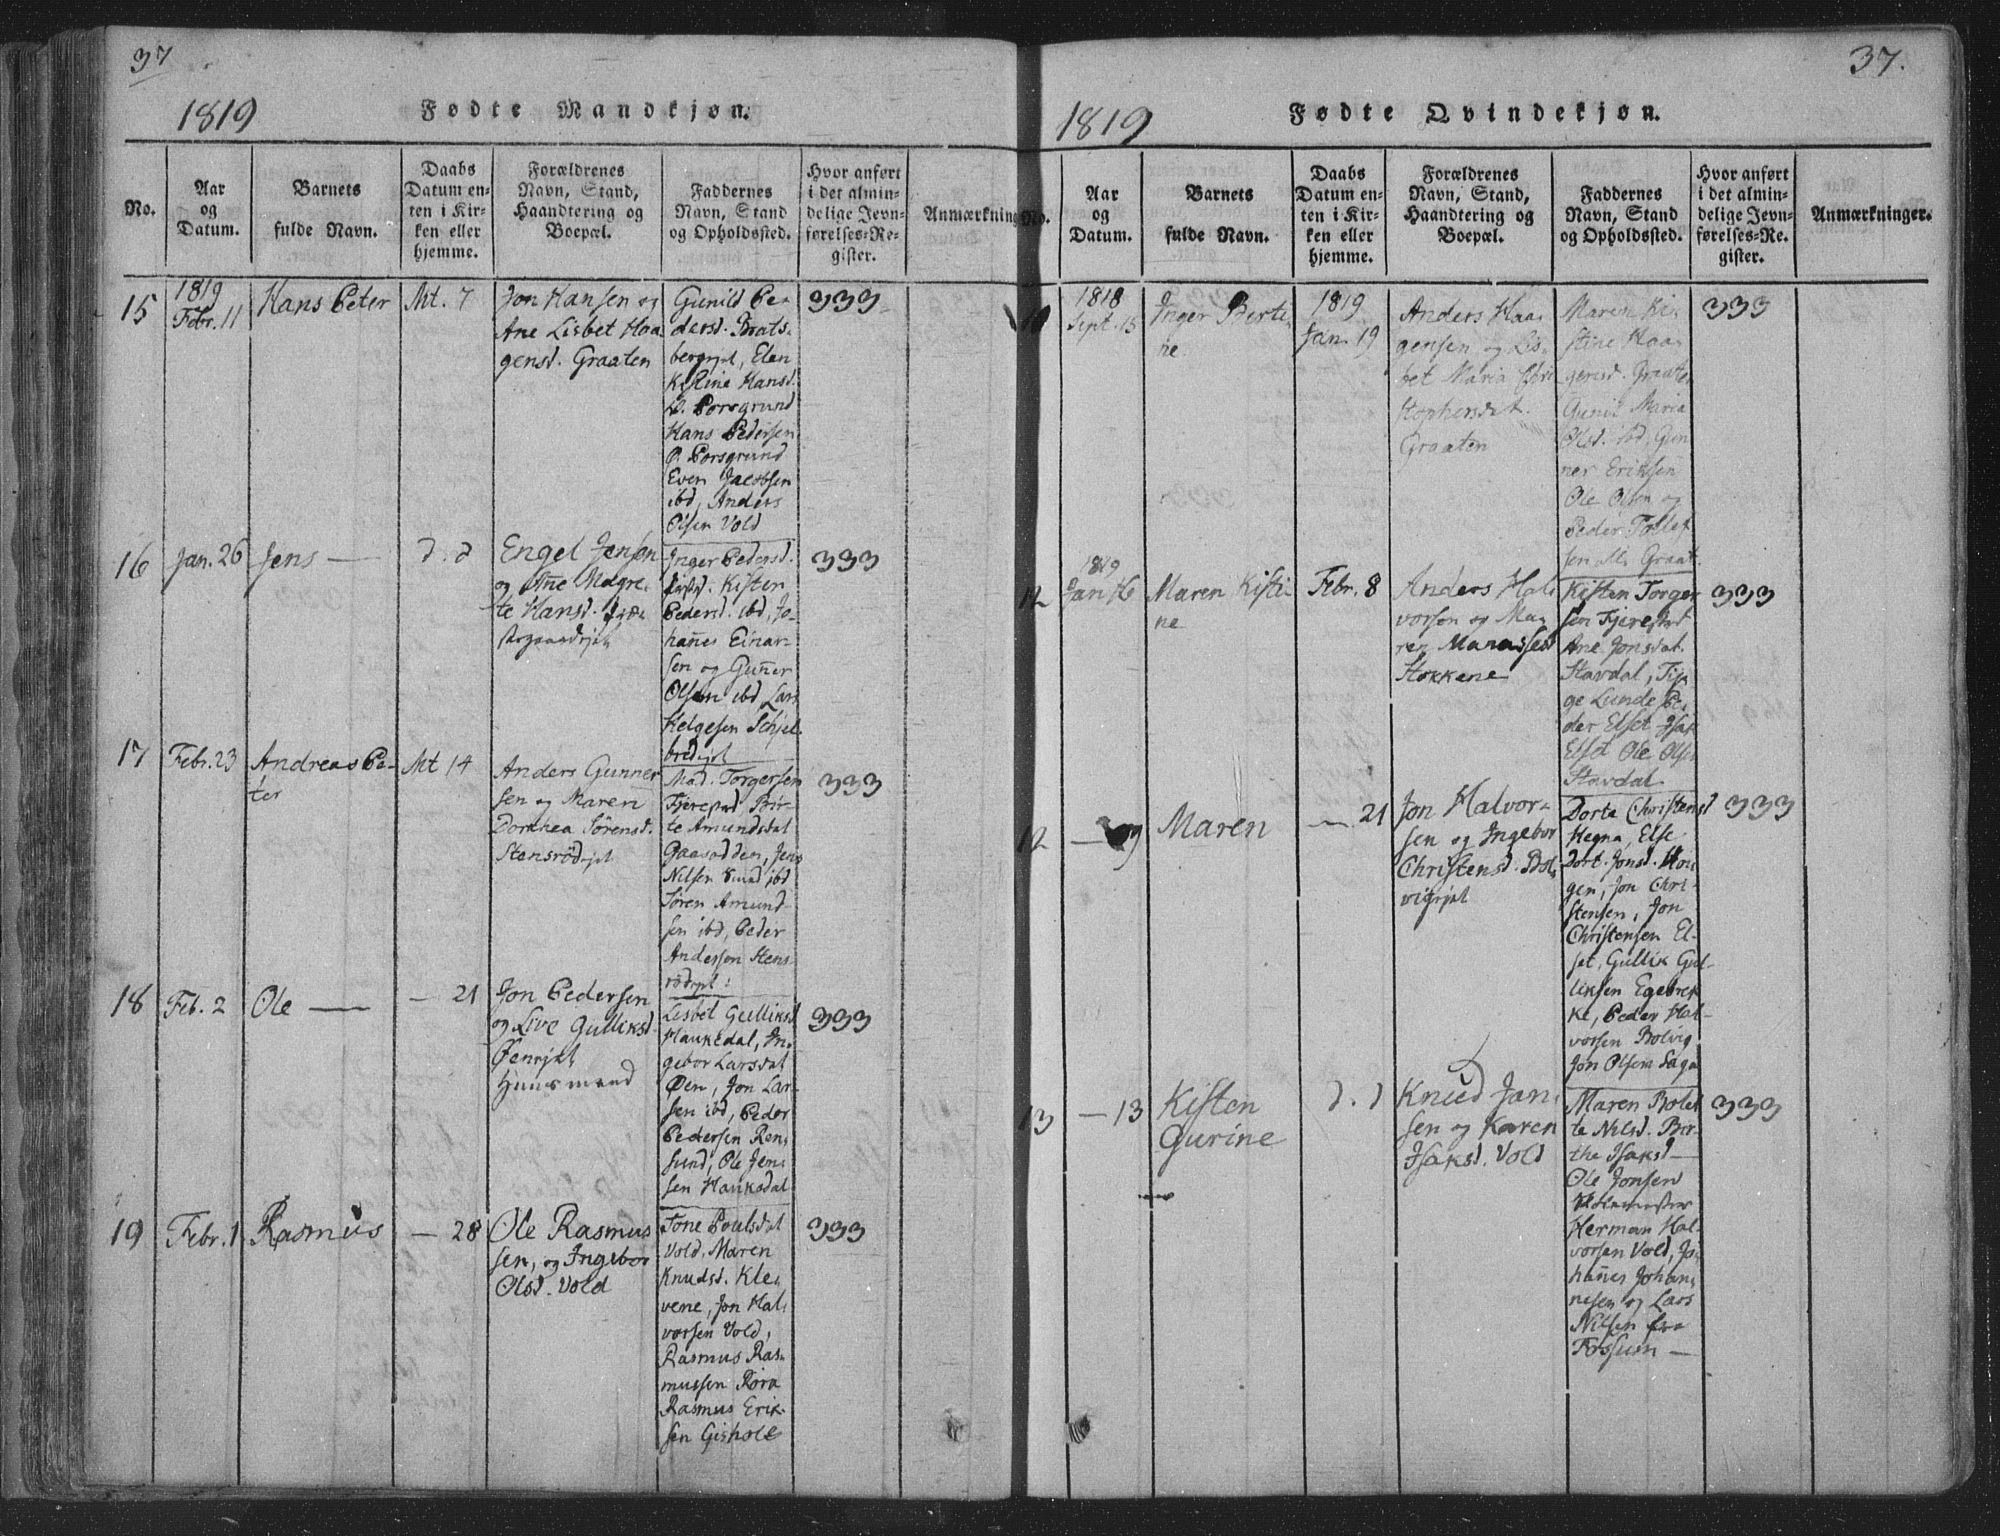 37
1819
Fødte Mandkjøn.
No.
Aar
og
Datum.
Barnets
fulde Navn.
Daabs
Datum en-
ten i Kir-
ken eller
hjemme.
Forældrenes
Navn, Stand,
Haandtering og
Boepæl.
Faddernes
Navn, Stand
og Opholdssted.
Hvor anført
i det almin-
delige Jevn-
førelses-Re-
gister.
Anmærkning
15
1819
Febr. 11
Hans Peter
Mt. 7
Jon Hansen og
Ane Lisbet Haa
gensd. Graaten
Gunild Pe-
dersd. Brats-
bergejet, Elen
Kistine Hansd.
Ø. Porsgrund
Hans Pedersen
Ø. Porsgrund
Even Jacobsen
ibd, Anders
Olsen Vold
333
16
Jan. 26
Jens —
d. d
Engel Jensen
og Añe Magre-
te Hansd.
Inger Pedersd.
Kisten
Pedersd. ibd, Jo-
hañes Einar-
sen og Guñer
Olsen ibd, Lars
Helgesen Schjel-
bredejet
333
17
Febr. 23
Andreas Pe-
ter
Mt 14
Anders Gunner
sen og Maren
Dorthea Sörensd.
Stensrödejet
Mad. Torgersen
Fjerestad Bir-
te Amundsdat
Gaasodden, Jens
Nilsen Sund ibd
Sören Amund-
sen ibd, Peder
Andersen Stens-
rödejet:
333
18
Feb. 2
Ole —
— 21
Jon Pedersen
og Live Gulliksd.
Øenejet
Huusmand
Lisbet Gulliksd
Haukedal, In-
gebor Larsdat
Øen, Jon Lar-
sen ibd, Peder
Pedersen Ren-
sund, Ole Jen-
sen Haukedal
333
19
Febr. 1
Rasmus
— 28
Ole Rasmus
sen, og Ingebor
Olsd. Vold
Tone Poulsdat
Vold, Maren
Knudsd. Kle-
vene, Jon Hal-
vorsen Vold,
Rasmus Ras-
mussen Röra
Rasmus Erik-
sen Gisholt
333
37.
1819
Fødte Qvindekjøn.
No.
Aar
og
Datum.
Barnets
fulde Navn.
Daabs
Datum en-
ten i Kir-
ken eller
hjemme.
Forældrenes
Navn, Stand,
Haandtering og
Boepæl.
Faddernes
Navn, Stand
og Opholdssted.
Hvor anført
i det almin-
delige Jevn-
førelses-Re-
gister.
Anmærkninger.
1818
Sept. 15
Inger Berti-
ne
1819
Jan. 19
Anders Haa-
gensen og Lis-
bet Maria Chri
stophersdat.
Graaten
Maren Ki-
stine Haa-
gensd. Graaten
Gunil Maria
Olsd. ibd, Gun
ner Eriksen
Ole Olsen og
Peder Tollef
sen alle Graat.
333
12
1819
Jan 16
Maren Kisti-
ne
Febr. 8
Anders Hal-
vorsen og Ma-
ren Manassesd
Stokkene
Kisten Torger
sen Fjerestad
Ane Jonsdat.
Stavdal,
Lunde Pe-
der Elset Isak
Elset Ole Olsen
Stavdal
333
12
— 9
Maren
— 21
Jon Halvor-
sen og Ingebor
Christensd. Bol-
vigejet
Dorte Christensd
Hegna, Else
Dort. Jonsd. Hou-
gen, Jon Chri-
stensen, Jon
Christensen El-
set, Gullik Gul-
liksen Egebrek
ke, Peder Hal-
vorsen Bolvig
Jon Olsen Saga
333
13
— 13
Kisten
Gurine
d. d
Knud Jan-
sen og Karen
Isaksd. Vold
Maren Bolet
te Nilsd. Bir-
the Isaksd —
Ole Jonsen
Herman Hal-
vorsen Vold, Jo-
hañes Johan-
nesen og Lars
Nilsen fra
Fossum —
333